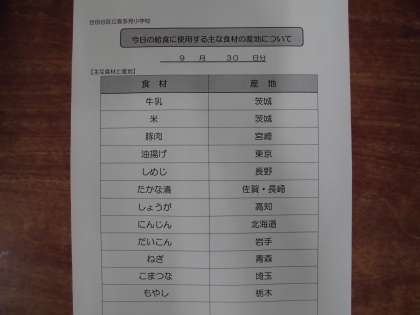 世田谷区立喜多見小学校
今日の給食に使用する主な食材の産地について
9 月 30 日分
【主な食材と産地】
食材 産地
牛乳 茨城
米 茨城
豚肉 宮崎
油揚げ 東京
しめじ 長野
たかな漬 佐賀・長崎
しょうが 高知
にんじん 北海道
だいこん 岩手
ねぎ 青森
こまつな 埼玉
もやし 栃木